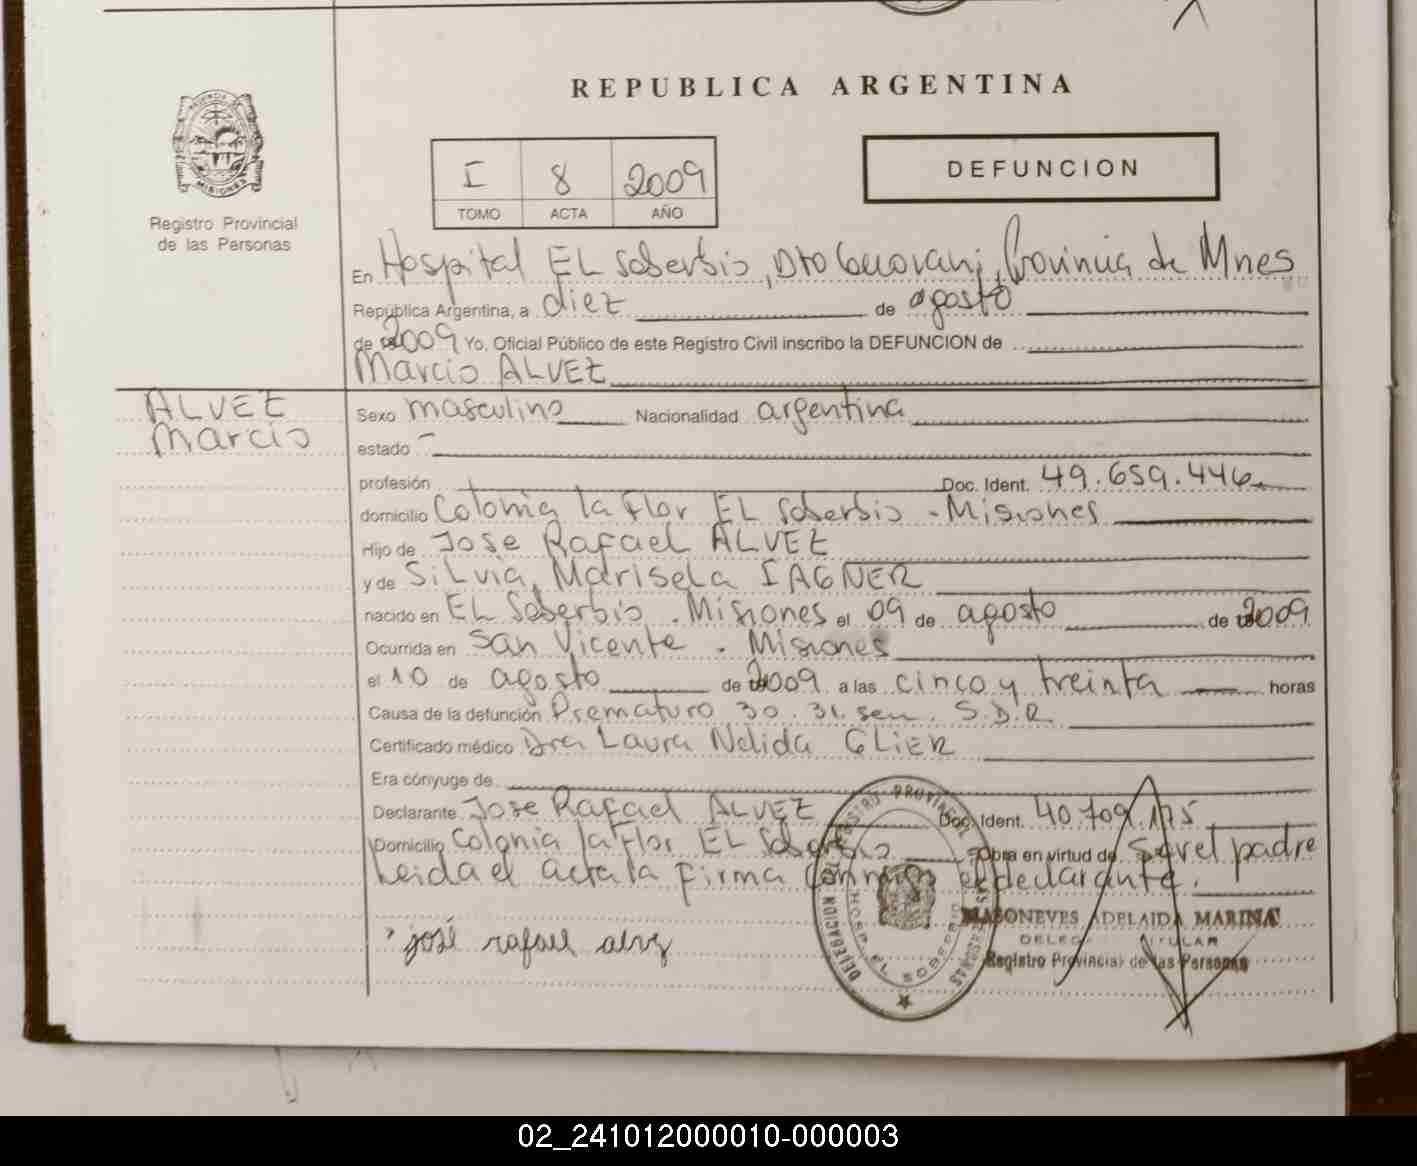 REPUBLICA ARGENTINA
I 8 2009
TOMO ACTA AÑO
DEFUNCION
Registro Provincial
de las Personas
En Hospital EL Soberbio, Dto Guarani, Provincia de Mnes
República Argentina, a diez de agosto
de 2009 Yo, Oficial Público de este Registro Civil inscribo la DEFUNCION de
Marcio ALVEZ
ALVEZ
Marcio
Sexo masculino Nacionalidad argentina
estado -
profesión Doc. Ident. 49.659.446
domicilio Colonia la Flor EL Soberbio - Misiones
Hijo de Jose Rafael ALVEZ
y de Silvia Marisela IAGNER
nacido en EL Soberbio. Misiones el 09 de agosto de 2009
Ocurrida en San Vicente - Misiones
el 10 de agosto de 2009 a las cinco y treinta horas
Causa de la defunción Prematuro 30. 31. sem. S.D.R
Certificado médico Dra Laura Nelida GLIER
Era cónyuge de
Declarante Jose Rafael ALVEZ Doc. Ident. 40.709.175
Domicilio Colonia la Flor EL Soberbio Obra en virtud de Ser el padre
Leida el acta la firma conmigo el declarante.
josé rafael alvez
REGISTRO PROVINCIAL DE LAS PERSONAS
DELEGACION
HOSP. EL SOBERBIO
MASONEVES ADELAIDA MARINA
DELEGADA TITULAR
Registro Provincial de las Personas
02_241012000010-000003